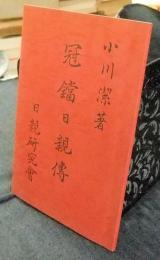 小川潔著
冠鐺日親傳
日親研究會